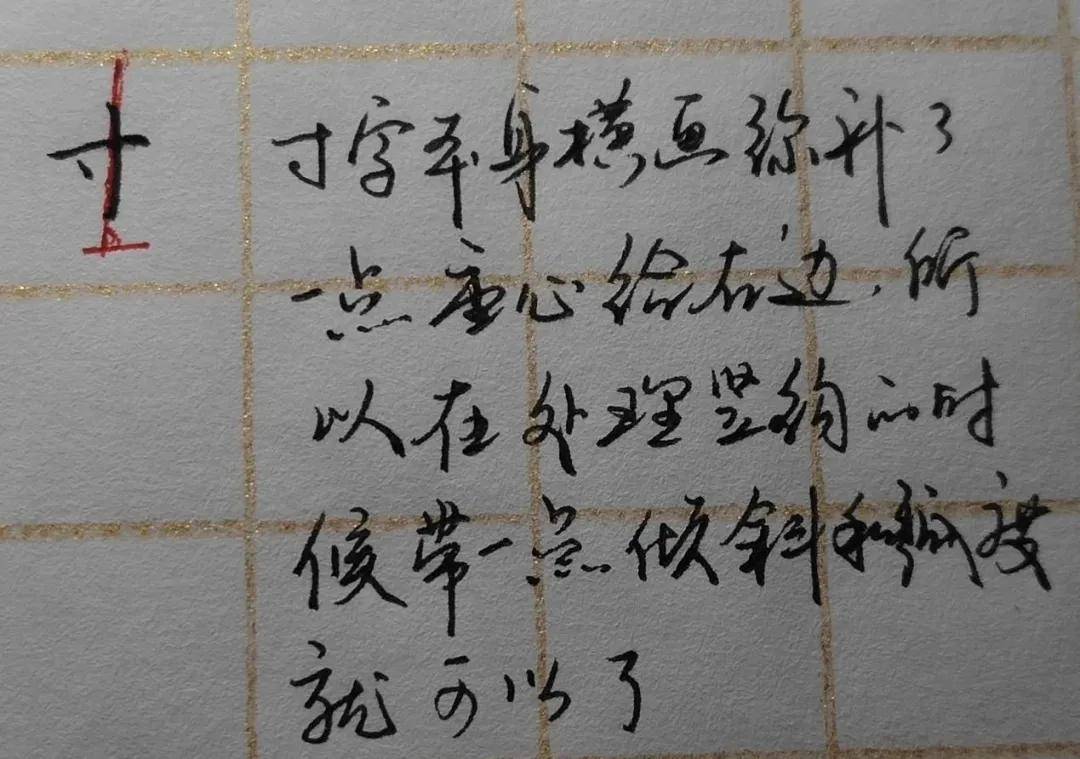 寸
寸字本身横画弥补了
一点重心给右边,所
以在处理竖钩的时
候带一点倾斜和弧度
就可以了